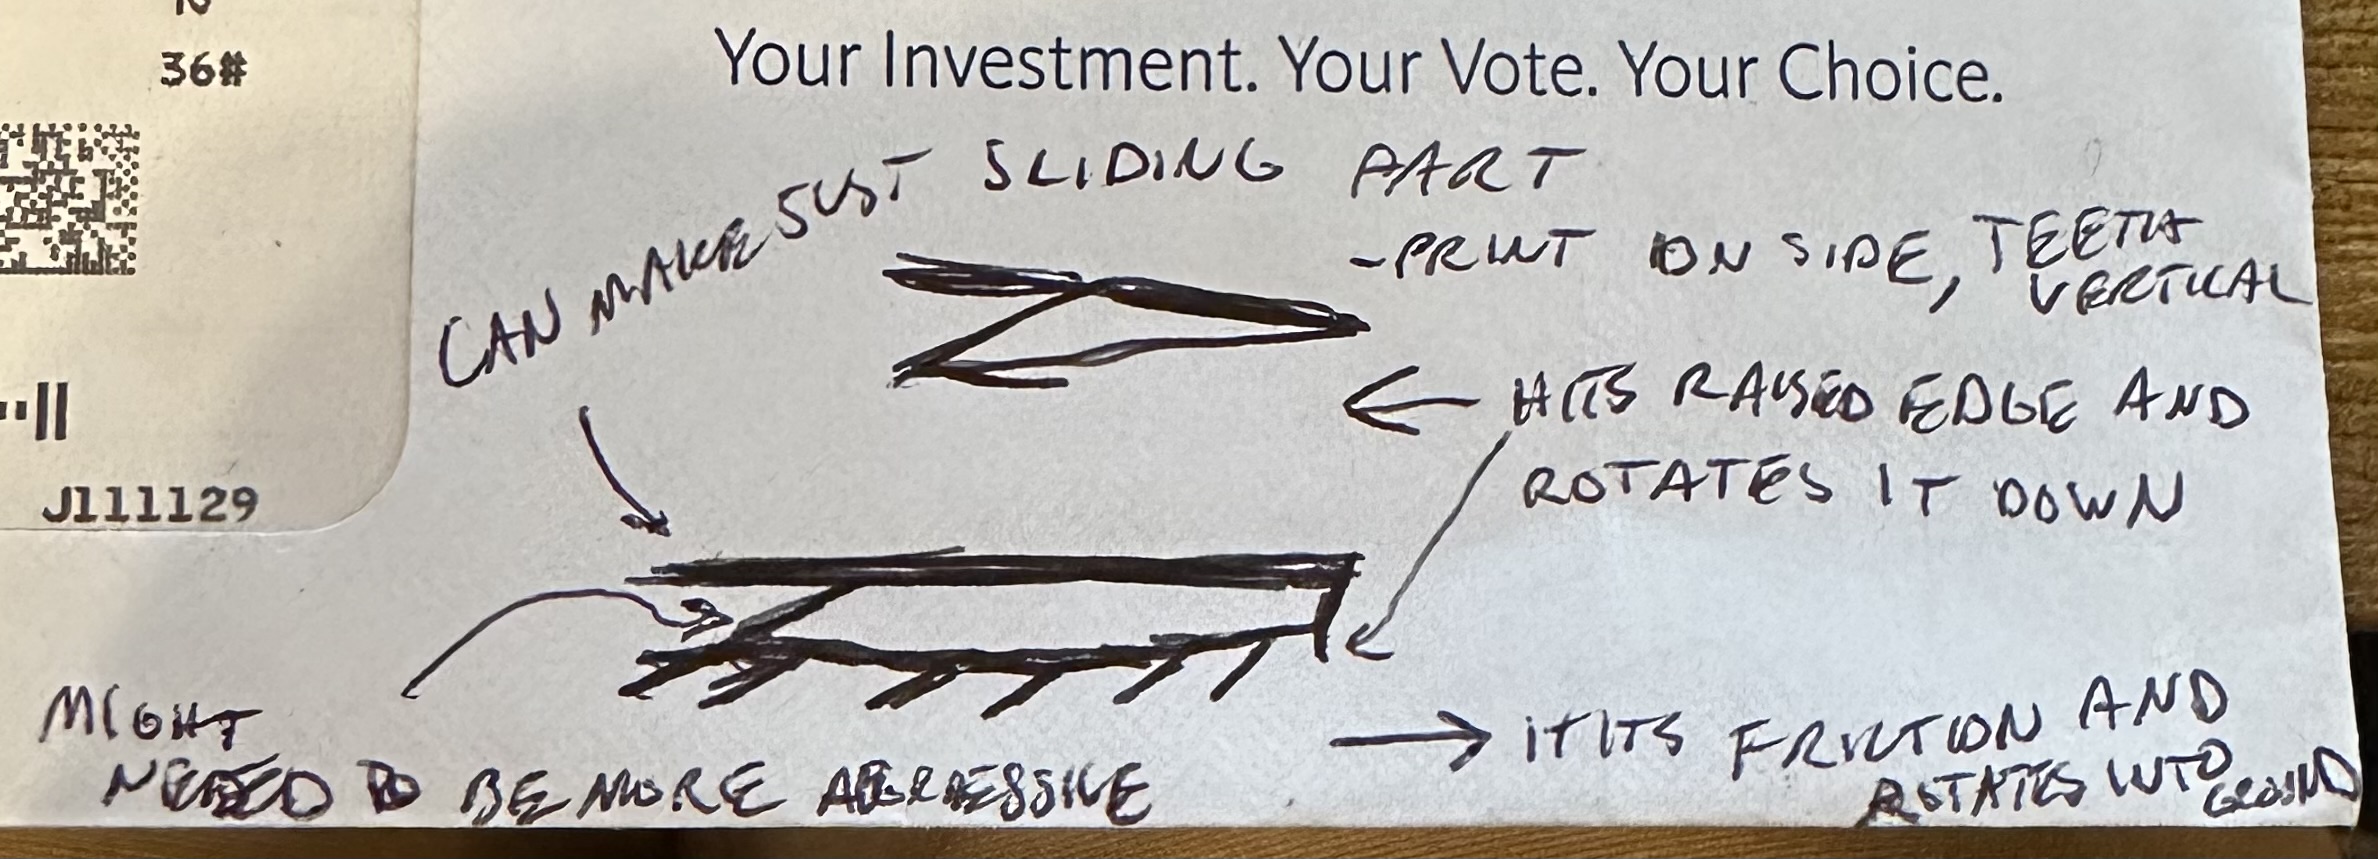 36#
Your Investment. Your Vote. Your Choice.
CAN MAKE JUST SLIDING PART
-PRINT ON SIDE, TEETH
VERTICAL
HITS RAISED EDGE AND
ROTATES IT DOWN
J111129
MIGHT
NEEED TO BE MORE AGGRESSIVE
HITS FRICTION AND
ROTATES INTO
GROUND